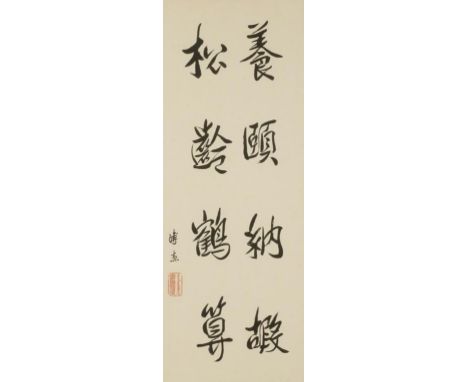 養頤納嘏
松齡鶴算
溥杰